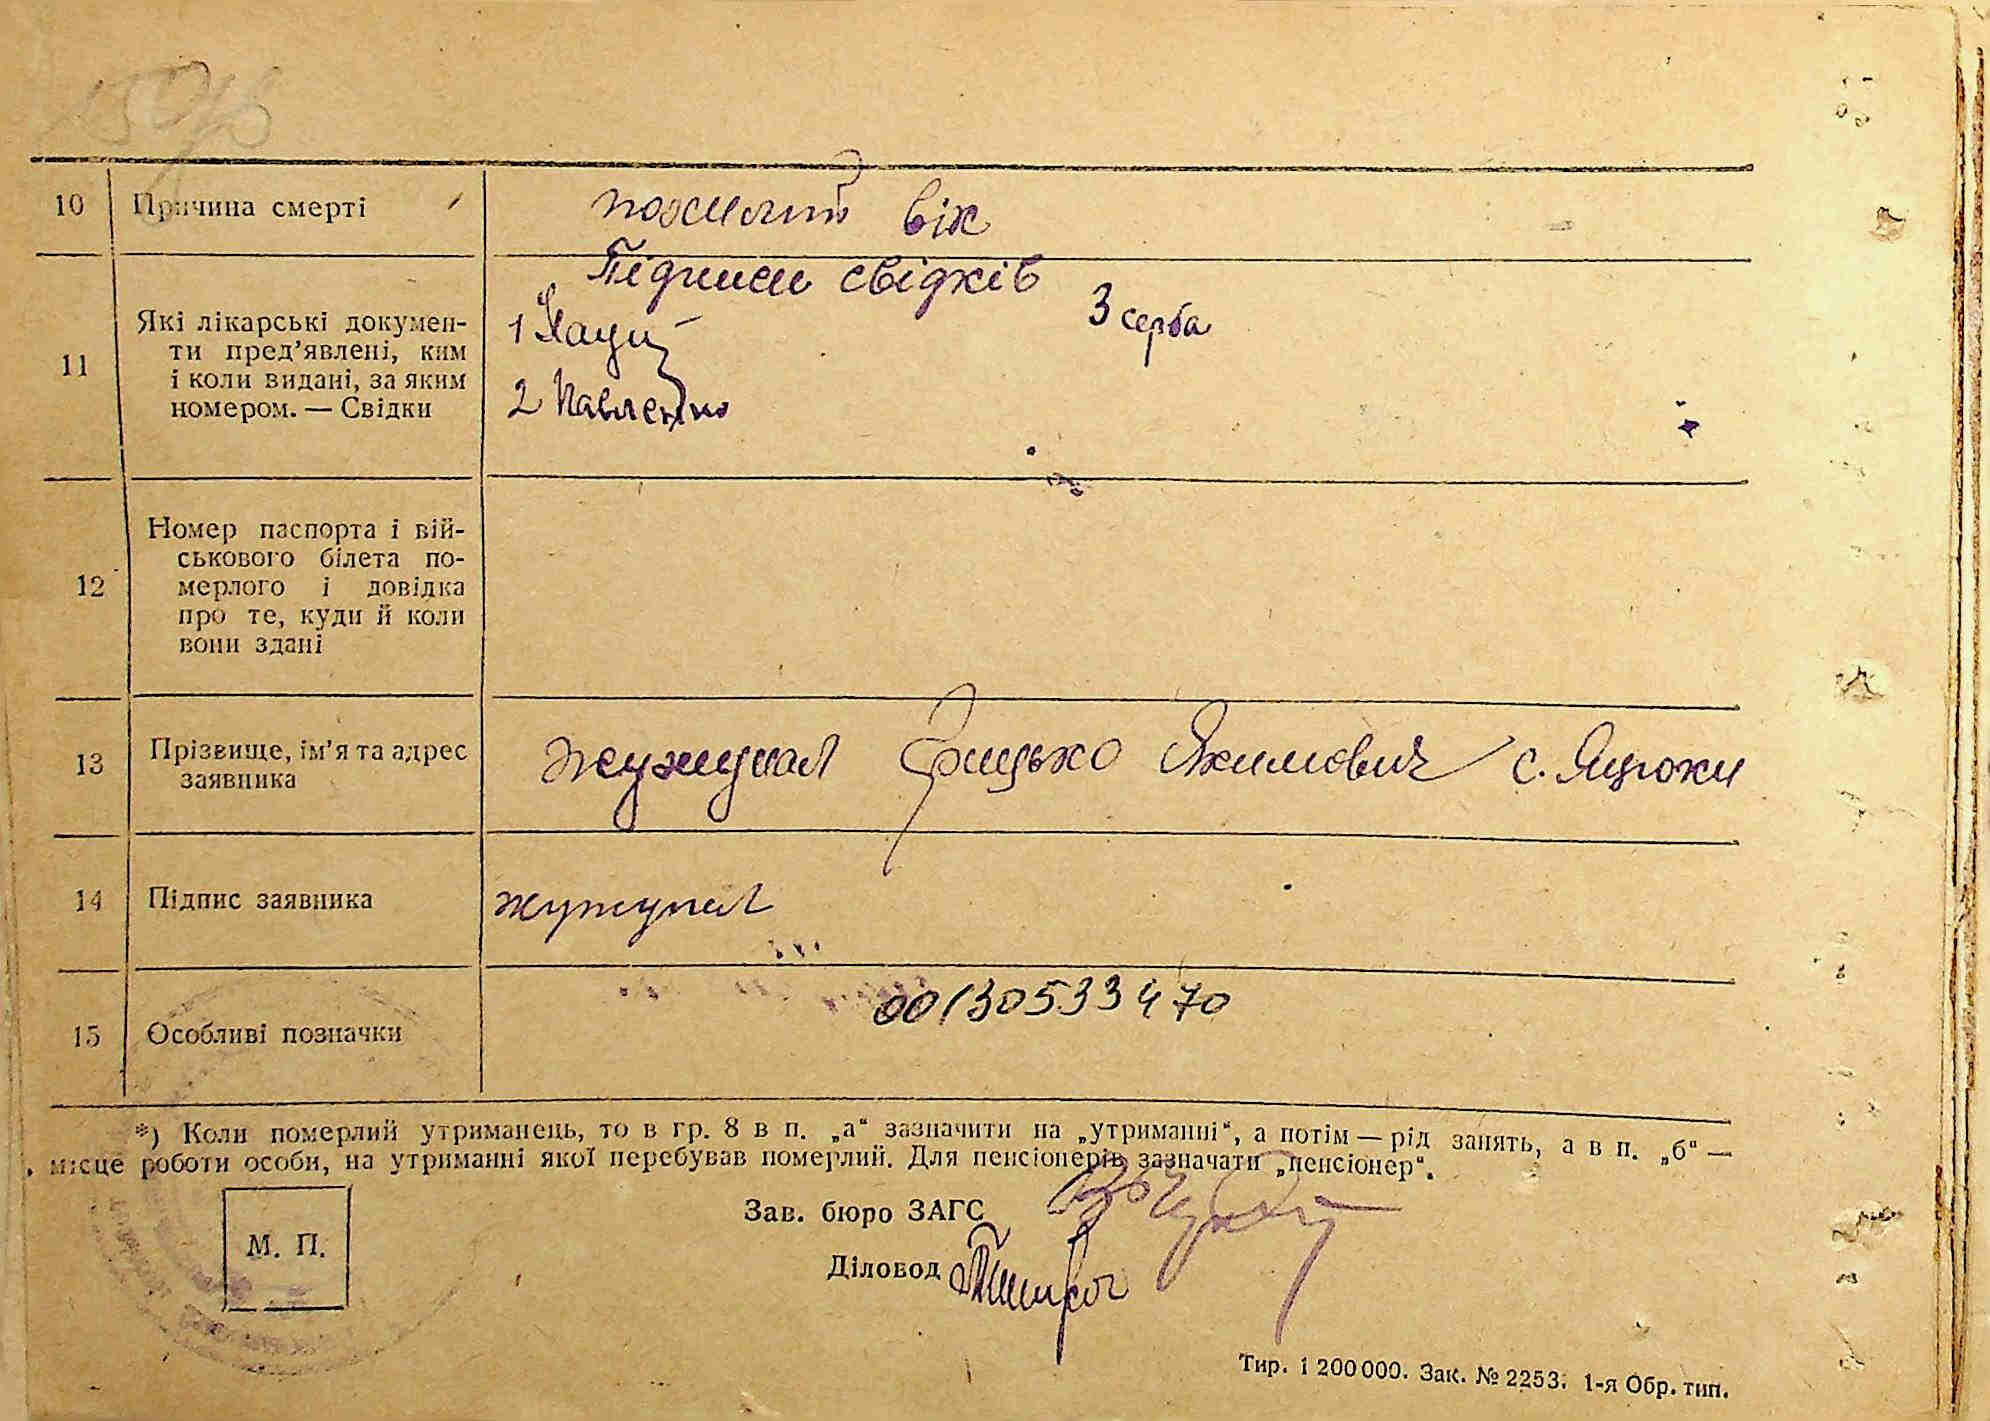 10 Причина смерті пожилий вік
Підписи свідків
11 Які лікарські докумен-
ти пред'явлені, ким
і коли видані, за яким
номером. — Свідки
1 Яцуй
3 серба
2 Павленко
12 Номер паспорта і вій-
ськового білета по-
мерлого і довідка
про те, куди й коли
вони здані
13 Прізвище, ім'я та адрес
заявника
Жужупал Грицько Якимович с. Яцюки
14 Підпис заявника Жужупал
15 Особливі позначки 00130533470
*) Коли померлий утриманець, то в гр. 8 в п. „а" зазначити на „утриманні", а потім — рід занять, а в п. „б" —
місце роботи особи, на утриманні якої перебував померлий. Для пенсіонерів зазначати „пенсіонер".
М. П.
Зав. бюро ЗАГС
Діловод
Тир. 1 200 000. Зак. № 2253. 1-я Обр. тип.